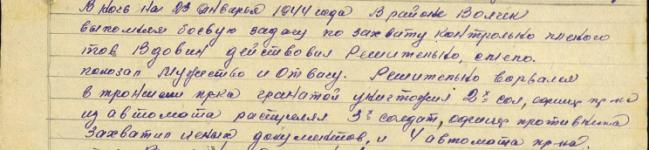 В ночь на 23 января 1944 года В районе Волчек
выполняя боевую задачу по захвату контрольно пленого
тов Вдовин действовал Решительно, смело.
показал Мужество и Отвагу. Решительно ворвался
в траншеи пр-ка гранатой уничтожил 2х сол,
из автомата растрелял 3х солдат, противника
захватил ценых документов, и 4 автомата пр-ка.